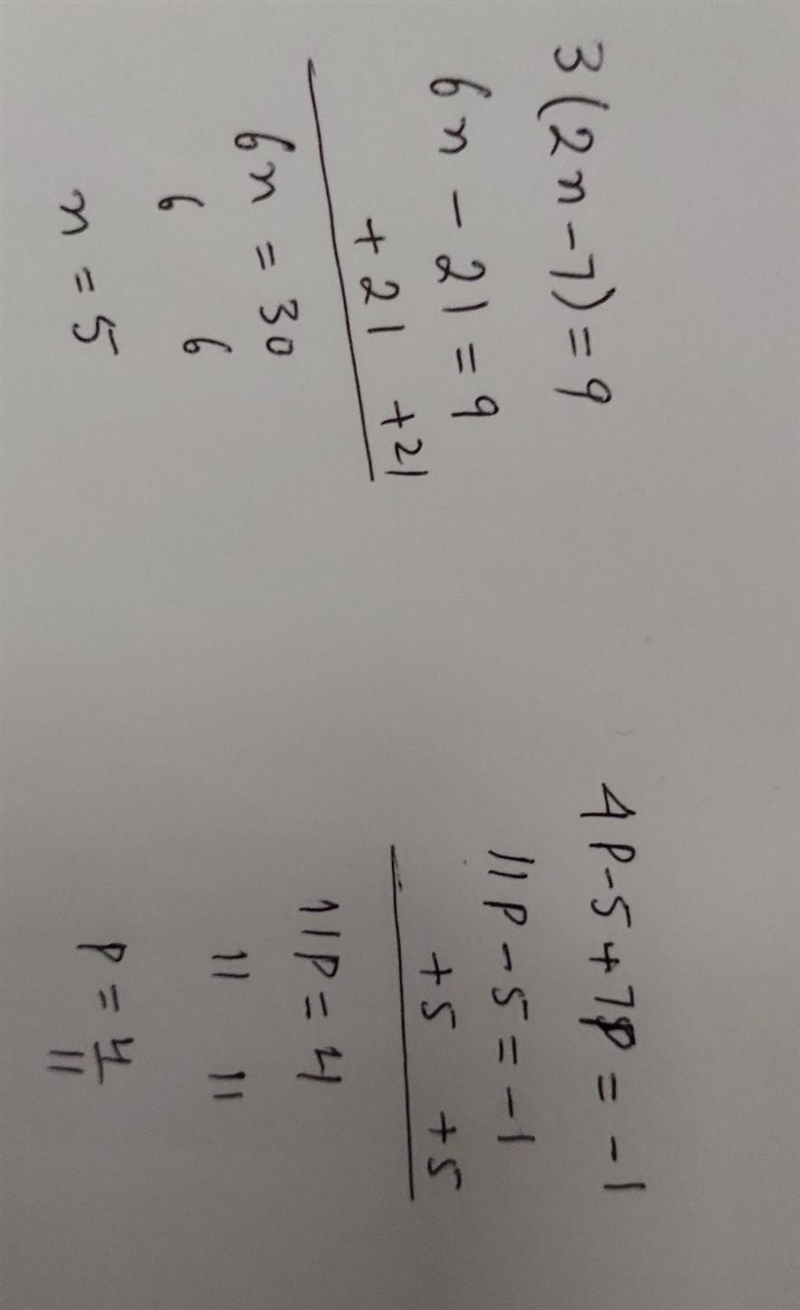 3(2n-7)=9
6n - 21 = 9
+ 21 +21
6n = 30
6 6
n = 5
4P-5+7P = -1
11P-5 = -1
+5 +5
11P = 4
11 11
P = 4
11